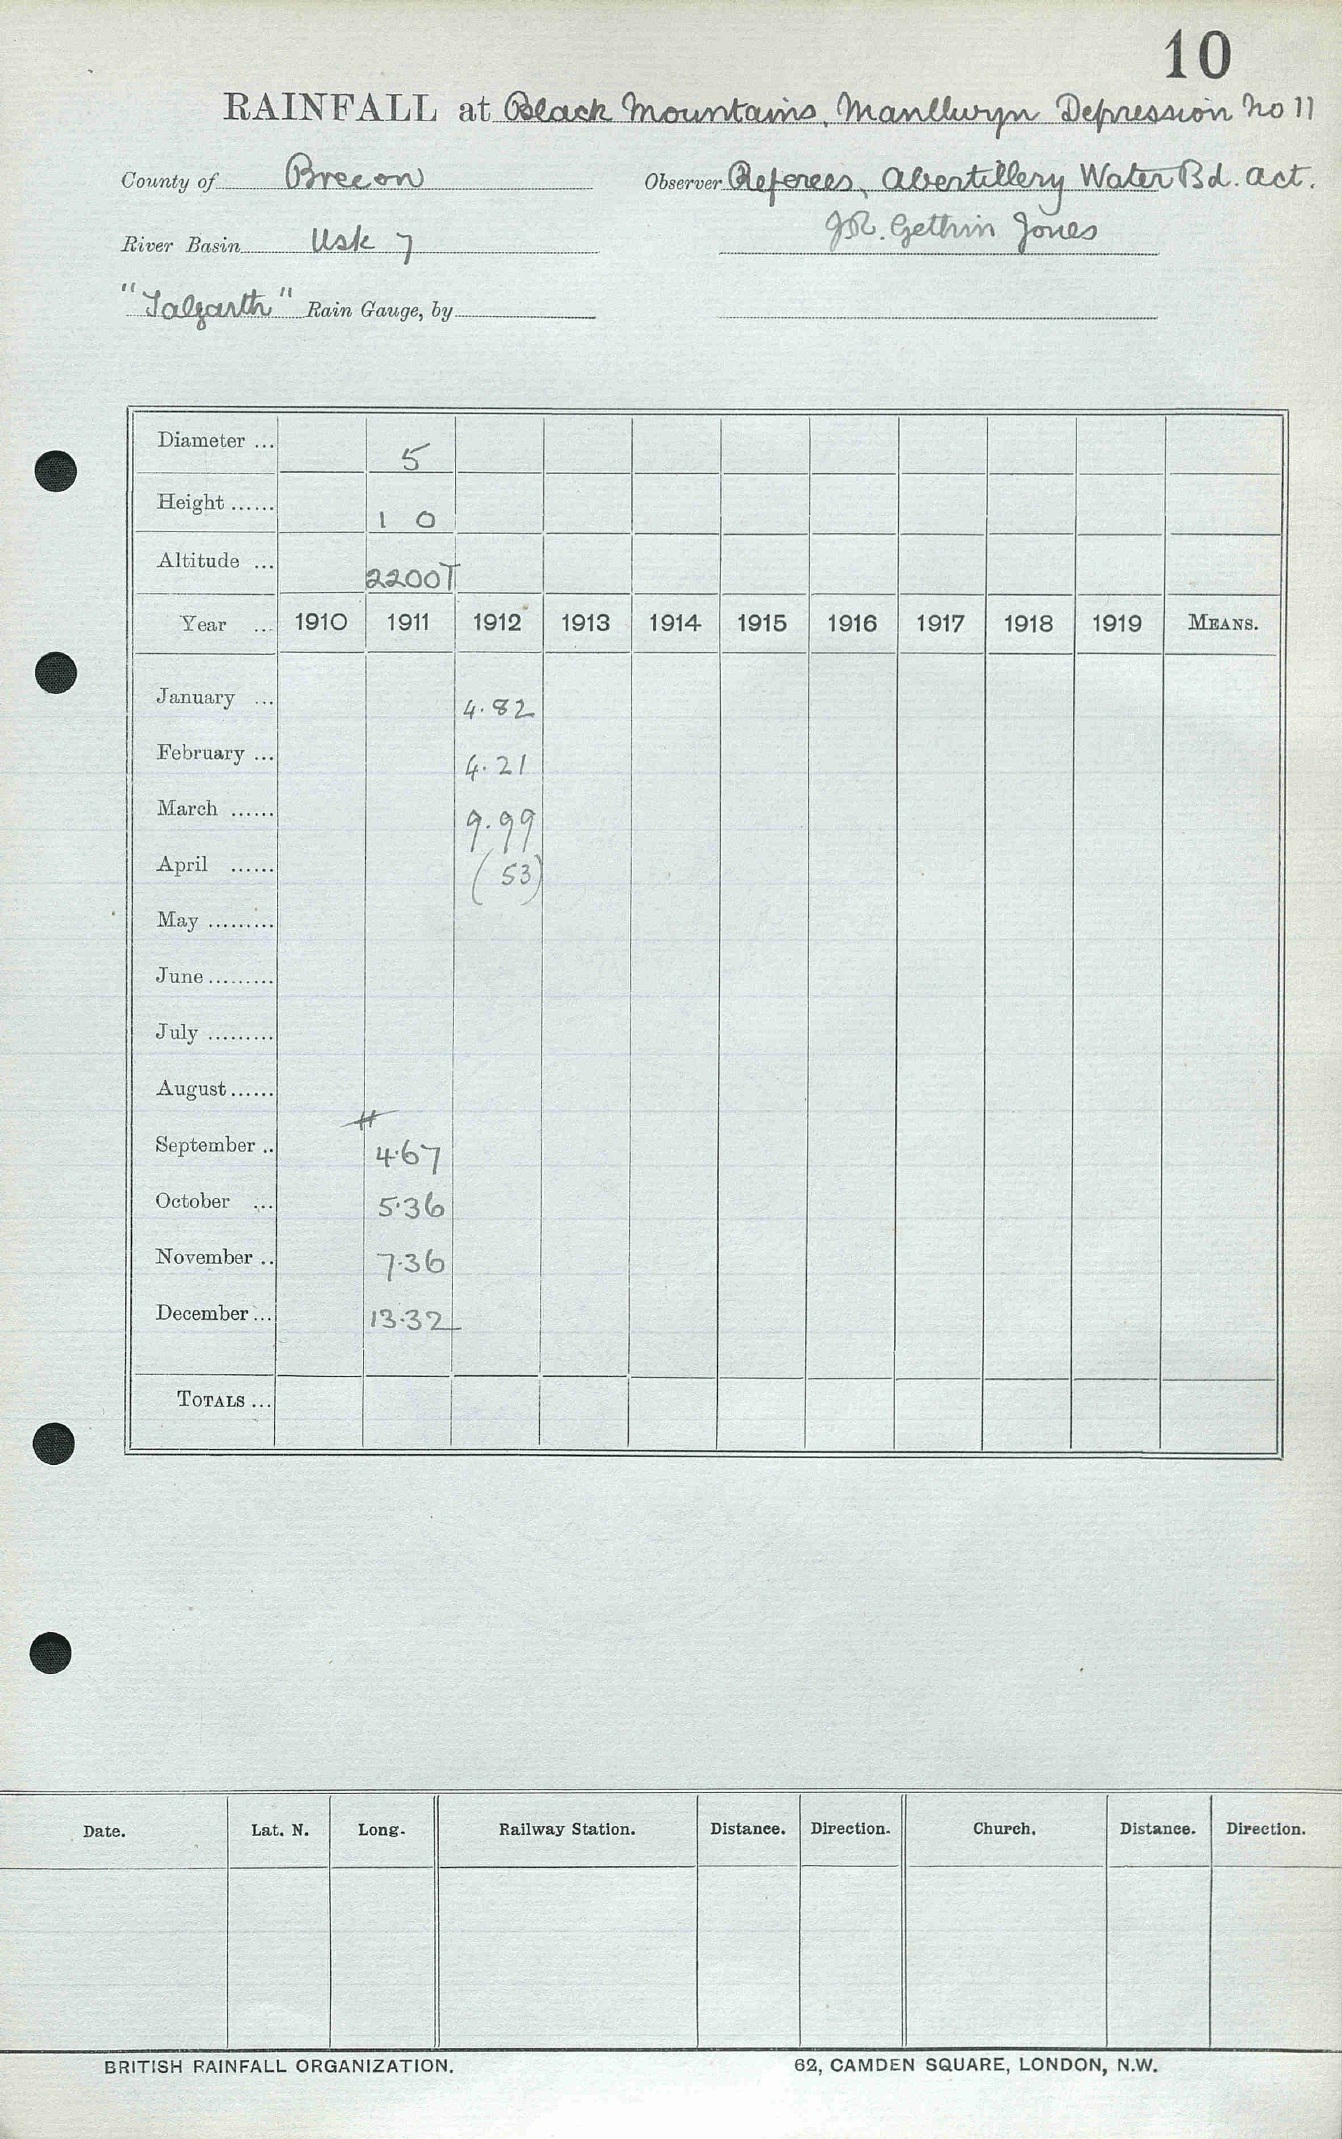 10
RAINFALL at Black Mountains, Manllwyn Depression No 11
County of Brecon Observer Referees, Abertillery Water Bd. Act.
River Basin Usk 7 J.R. Gethin Jones
"Talgarth" Rain Gauge, by
Diameter ... 5
Height ...... 1 0
Altitude ... 2200T
Year ... 1910 1911 1912 1913 1914 1915 1916 1917 1918 1919 MEANS.
January ... 4.82
February ... 4.21
March ...... 9.99
April ...... (53)
May .........
June .........
July .........
August ......
September .. 4.67
October ... 5.36
November .. 7.36
December ... 13.32
TOTALS ...
Date. Lat. N. Long. Railway Station. Distance. Direction. Church. Distance. Direction.
BRITISH RAINFALL ORGANIZATION. 62, CAMDEN SQUARE, LONDON, N.W.